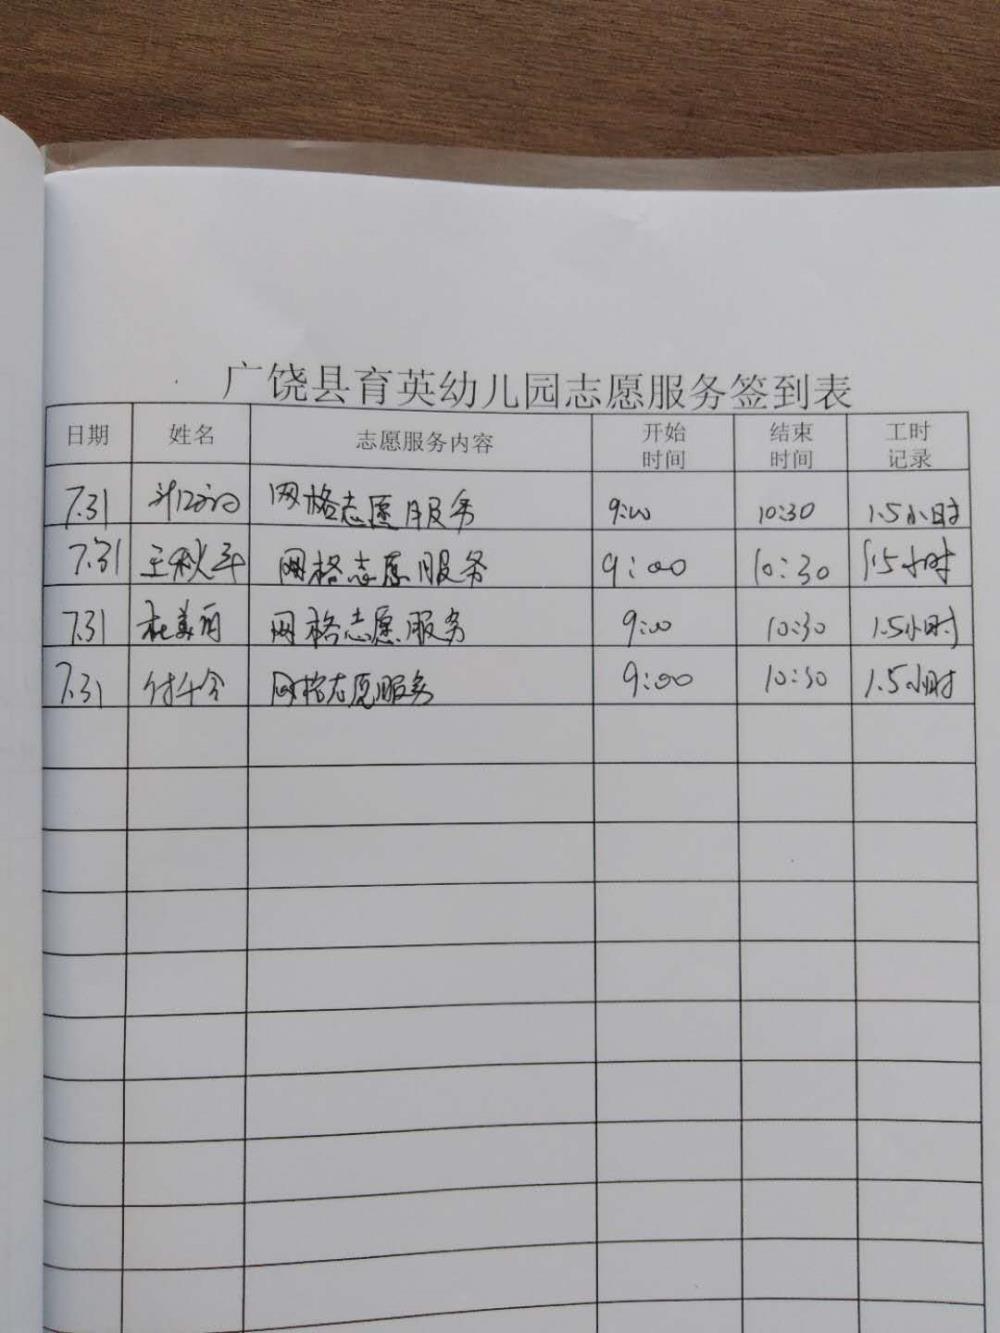 广饶县育英幼儿园志愿服务签到表
日期 姓名 志愿服务内容 开始时间 结束时间 工时记录
7.31 网格志愿服务 9:00 10:30 1.5小时
7.31 王秋平 网格志愿服务 9:00 10:30 1.5小时
7.31 杜美丽 网格志愿服务 9:00 10:30 1.5小时
7.31 网格志愿服务 9:00 10:30 1.5小时